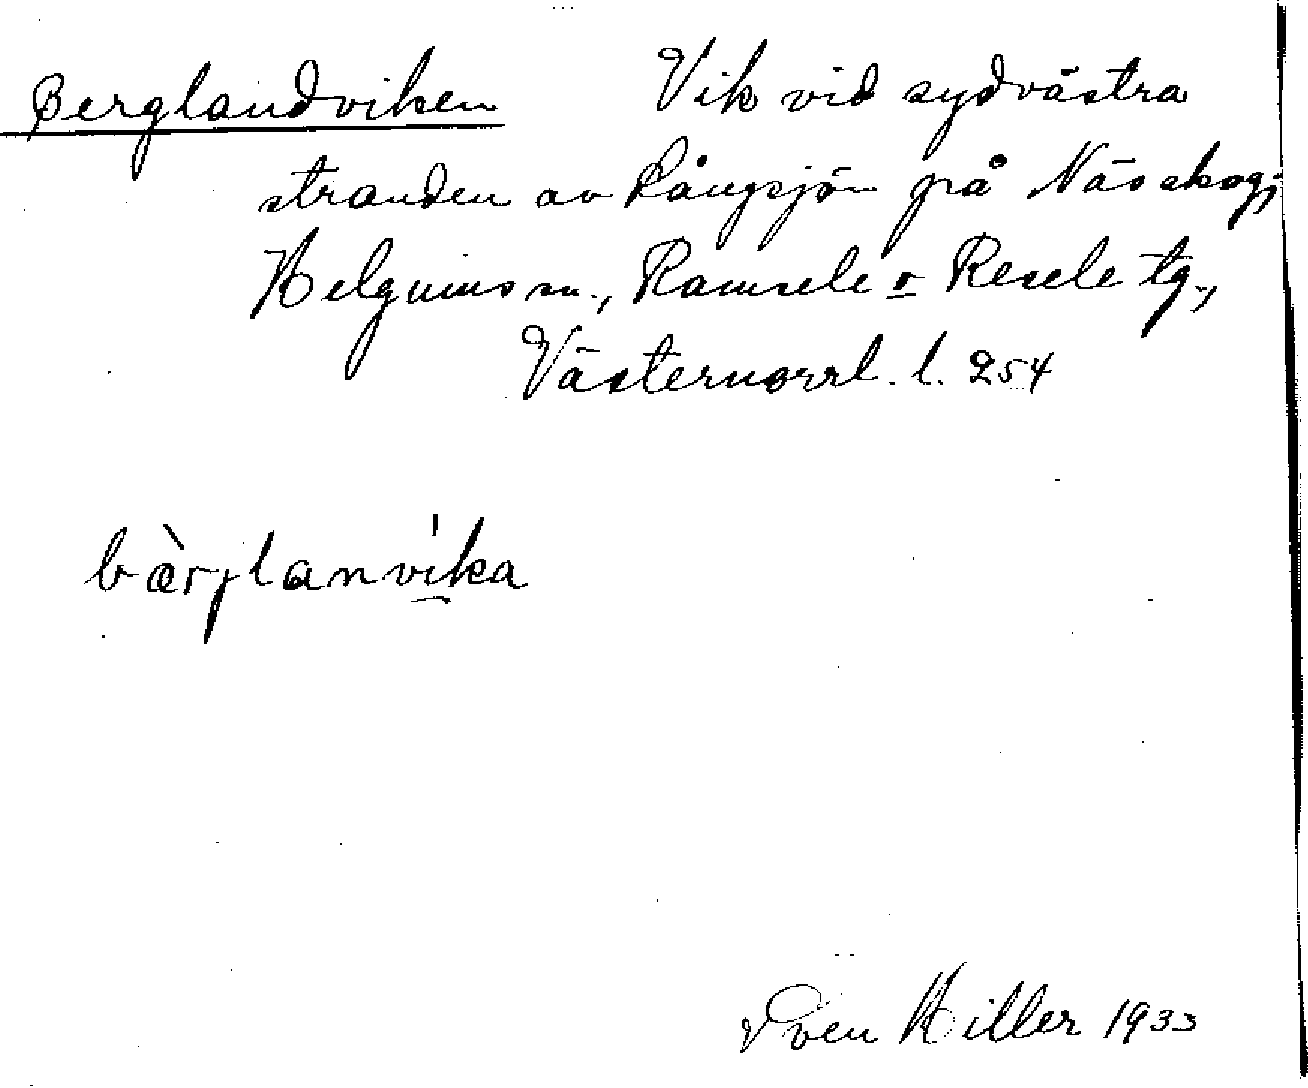 Berglandviken Vik vid sydvästra
stranden av Rångsjön på Näs skog,
Helgums sn., Ramsele o Resele tg.,
Västernorrl. l. 254
bàrjlanvika
Sven Hiller 1933